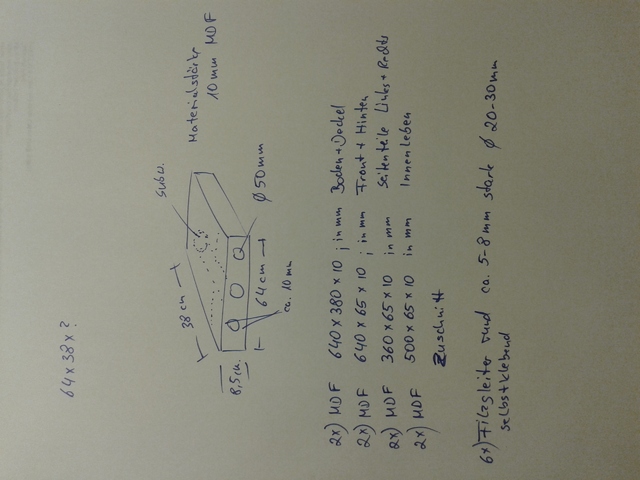 64 x 38 x ?
Materialstärke
10 mm MDF
Subw.
38 cm
Ø 50 mm
64 cm
ca. 10 mm
8,5 cm
2x) MDF 640 x 380 x 10 ; in mm Boden + Deckel
2x) MDF 640 x 65 x 10 ; in mm Front + Hinten
2x) MDF 360 x 65 x 10 in mm Seitenteile Links + Rechts
2x) MDF 500 x 65 x 10 in mm Innenleben
Zuschnitt
6x) Filzgleiter rund ca. 5-8 mm stark Ø 20-30 mm
selbstklebend